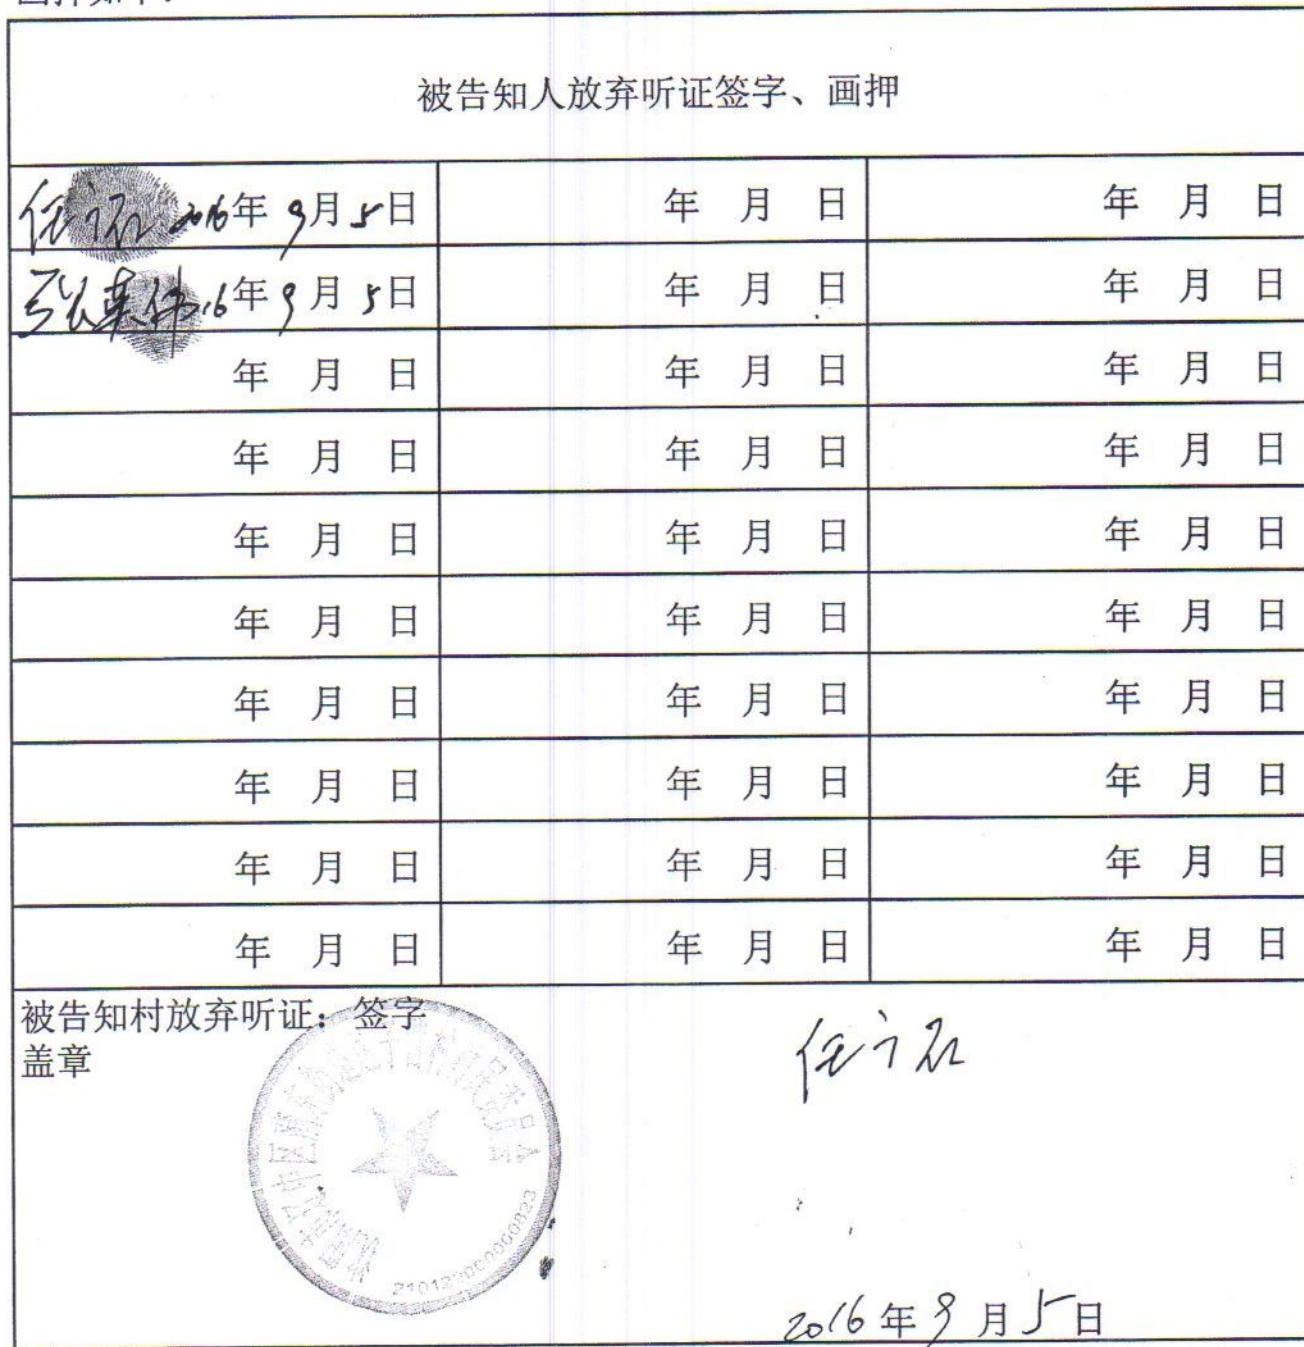 被告知人放弃听证签字、画押
2016年 9月5日 年 月 日 年 月 日
张英伟 16年9月5日 年 月 日 年 月 日
年 月 日 年 月 日 年 月 日
年 月 日 年 月 日 年 月 日
年 月 日 年 月 日 年 月 日
年 月 日 年 月 日 年 月 日
年 月 日 年 月 日 年 月 日
年 月 日 年 月 日 年 月 日
年 月 日 年 月 日 年 月 日
年 月 日 年 月 日 年 月 日
被告知村放弃听证：签字
盖章
村民委员会
2016年9月5日